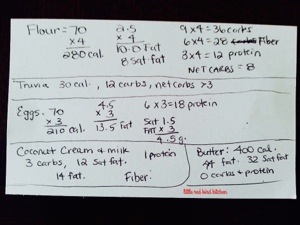 Flour = 70
x 4
280 cal
2.5
x 4
10.0 Fat
8 Sat fat
9 x 4 = 36 carbs
6 x 4 = 28 Fiber
3 x 4 = 12 protein
NET CARBS = 8
Truvia 30 cal, 12 carbs, net carbs >3
Eggs. 70
x 3
210 cal.
4.5
x 3
13.5 fat
6 x 3 = 18 protein
Sat 1.5
FAT x 3
4.5 g.
Coconut Cream & milk 1 protein
3 carbs, 12 Sat fat.
14 fat. Fiber:
Butter: 400 cal.
44 fat. 32 Sat fat
0 carbs & protein
little red bird kitchen